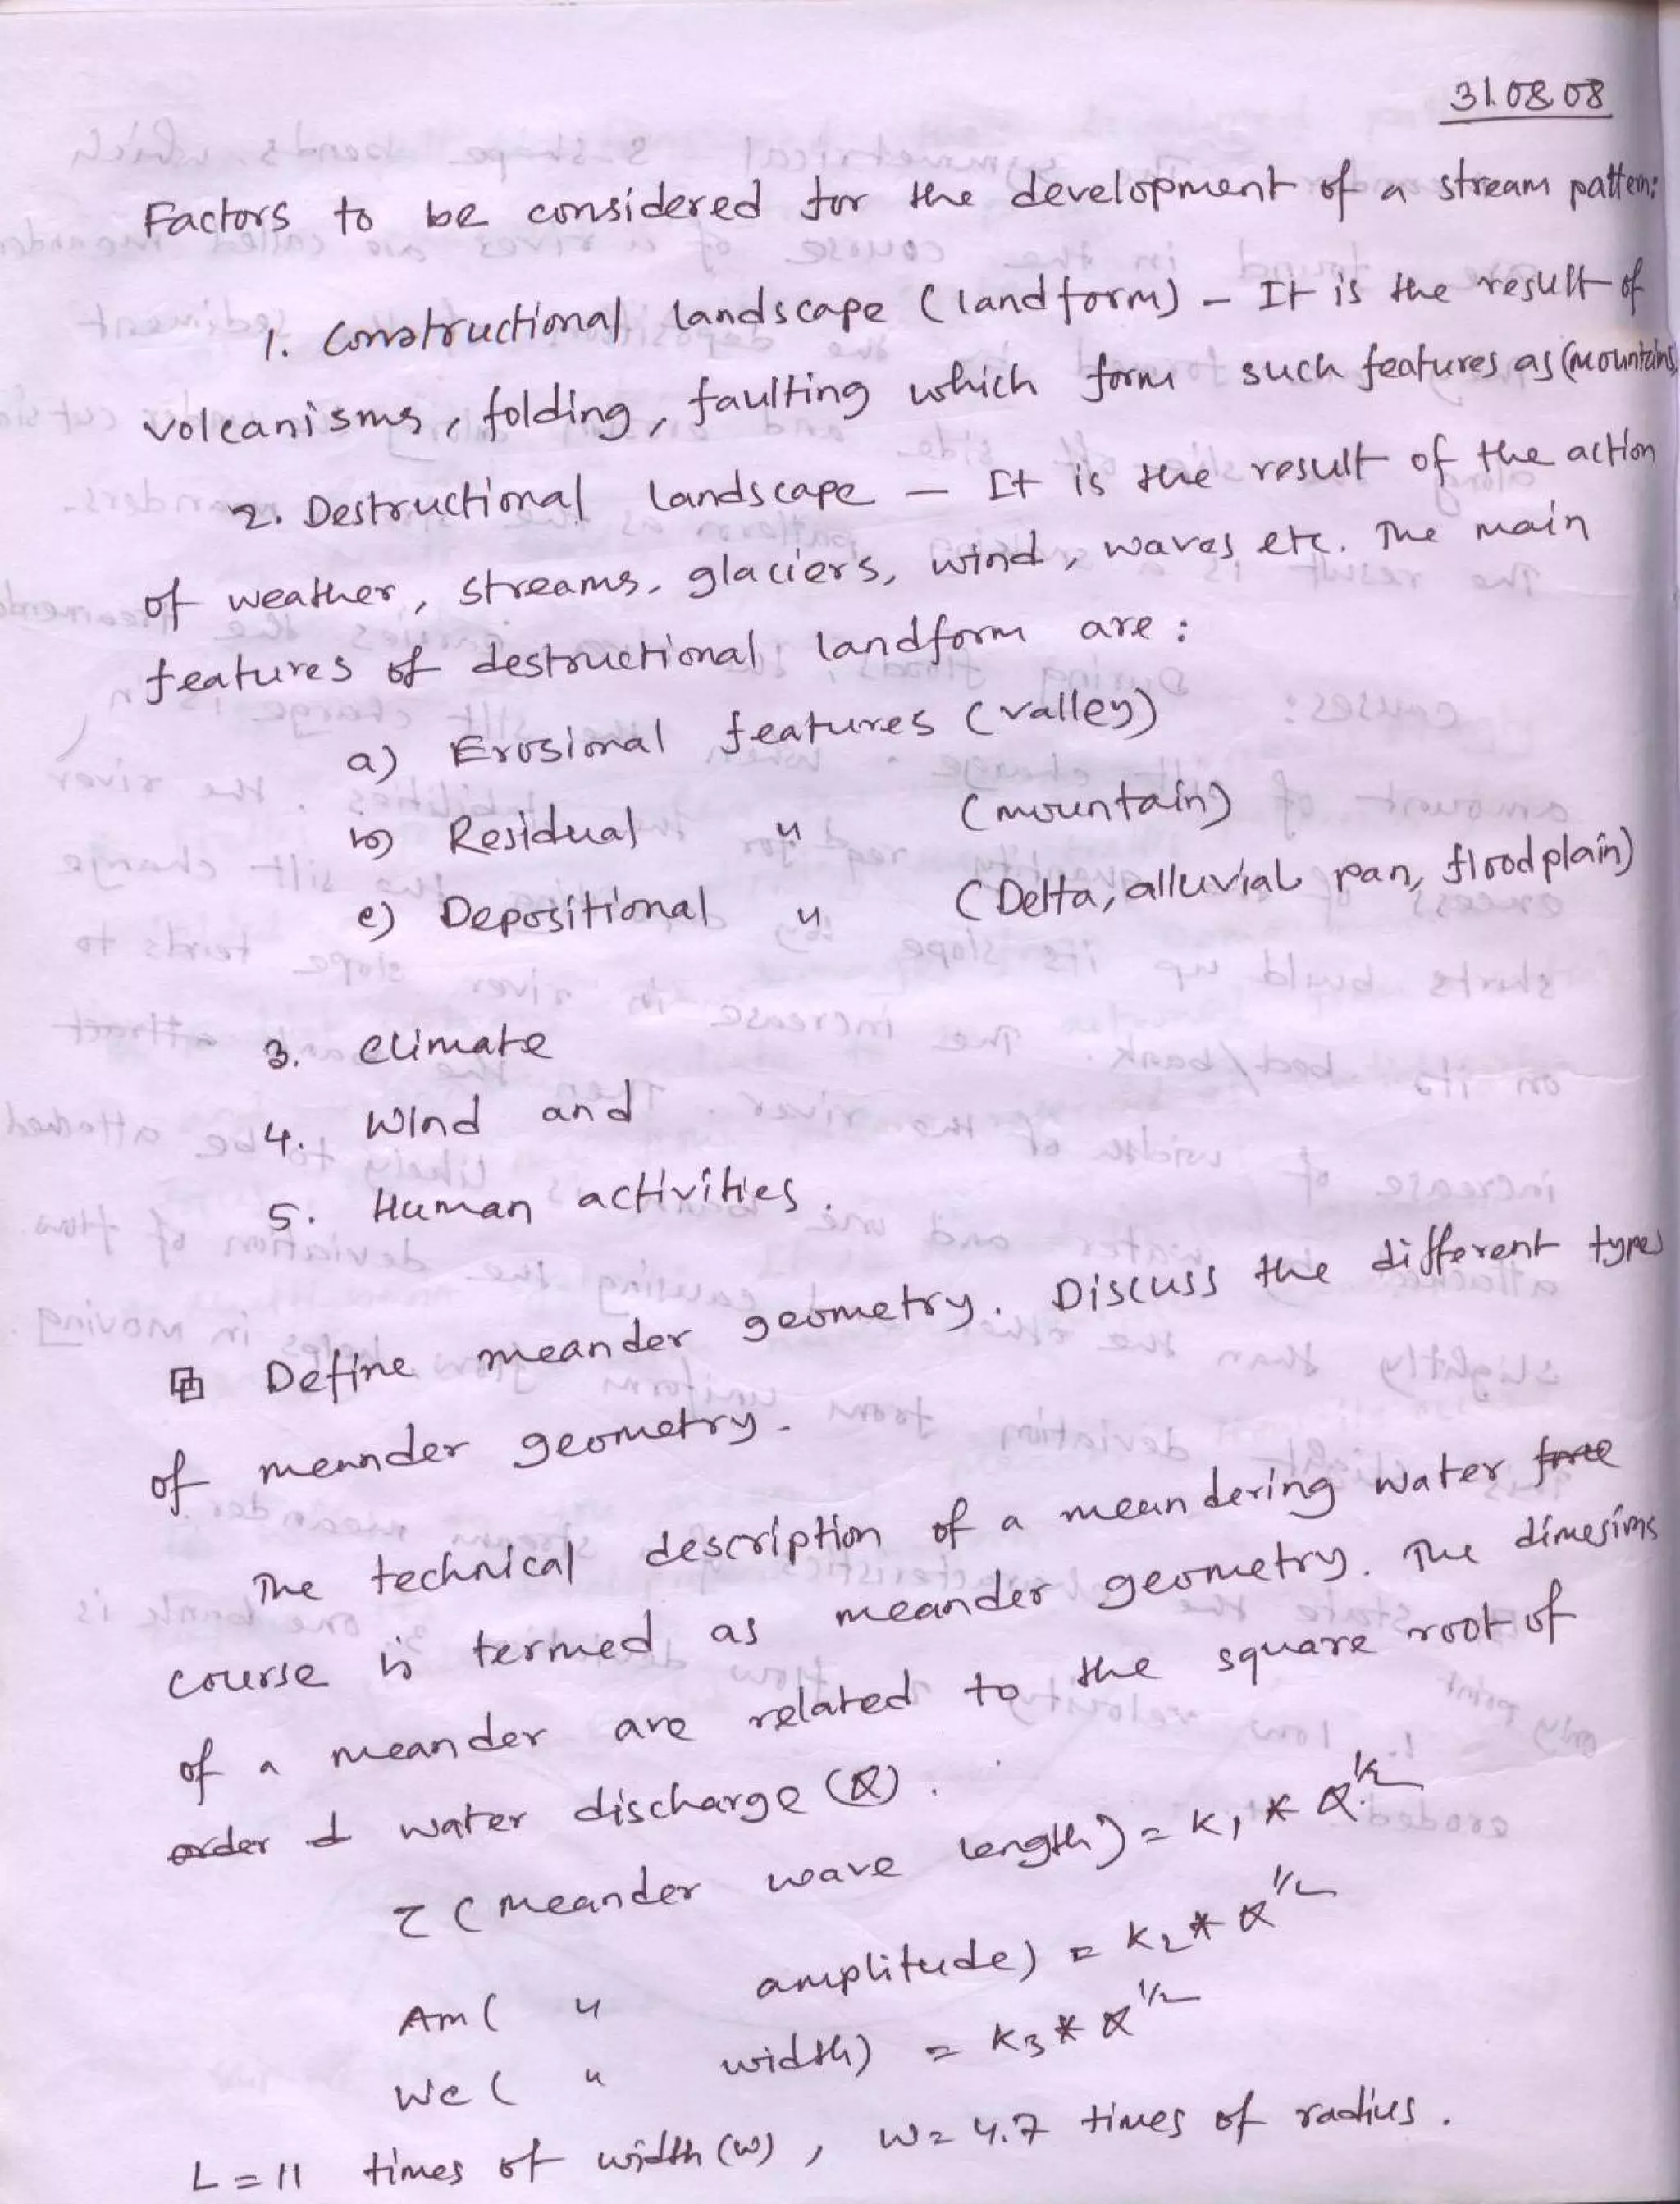 31.08.08
Factors to be considered for the development of a stream pattern:
1. Constructional landscape (landform) - It is the result of
volcanisms, folding, faulting which form such features as (mountains
2. Destructional landscape - It is the result of the action
of weather, streams, glaciers, wind, waves etc. The main
features of destructional landform are :
a) Erosional features (valley)
b) Residual " (mountain)
c) Depositional " (Delta, alluvial pan, floodplain)
3. climate
4. Wind and
5. Human activities.
Define meander geometry. Discuss the different types
of meander geometry.
The technical description of a meandering water
course is termed as meander geometry. The dimesions
of a meander are related to the square root of
order water discharge (Q).
(Meander wave length) = K1 * Q^1/2
Am ( " amplitude) = K2 * Q^1/2
Wc ( " width) = K3 * Q^1/2
L = 11 times of width (W), W = 4.7 times of radius.